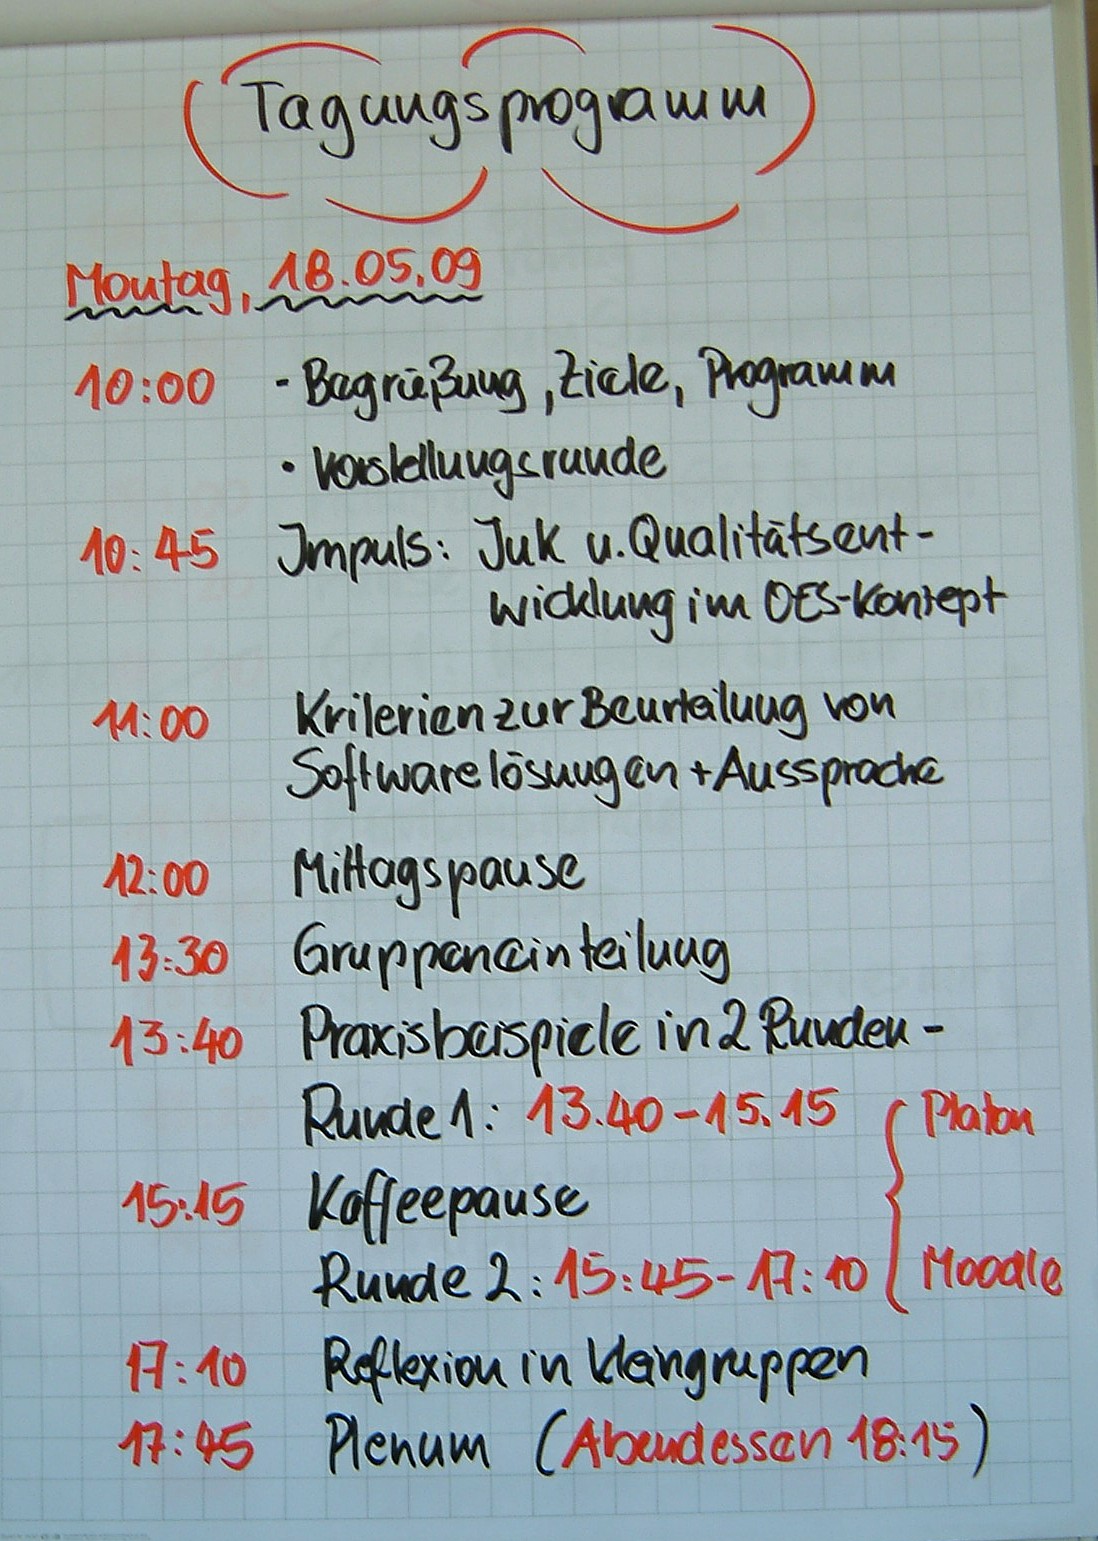 Tagungsprogramm
Montag, 18.05.09
10:00 - Begrüßung, Ziele, Programm
• Vorstellungsrunde
10:45 Impuls: IuK u. Qualitätsent-
wicklung im OES-Konzept
11:00 Kriterien zur Beurteilung von
Softwarelösungen + Aussprache
12:00 Mittagspause
13:30 Gruppeneinteilung
13:40 Praxisbeispiele in 2 Runden -
Runde 1: 13.40 - 15.15 Platon
15:15 Kaffeepause
Runde 2: 15:45 - 17:10 Moodle
17:10 Reflexion in Kleingruppen
17:45 Plenum (Abendessen 18:15)